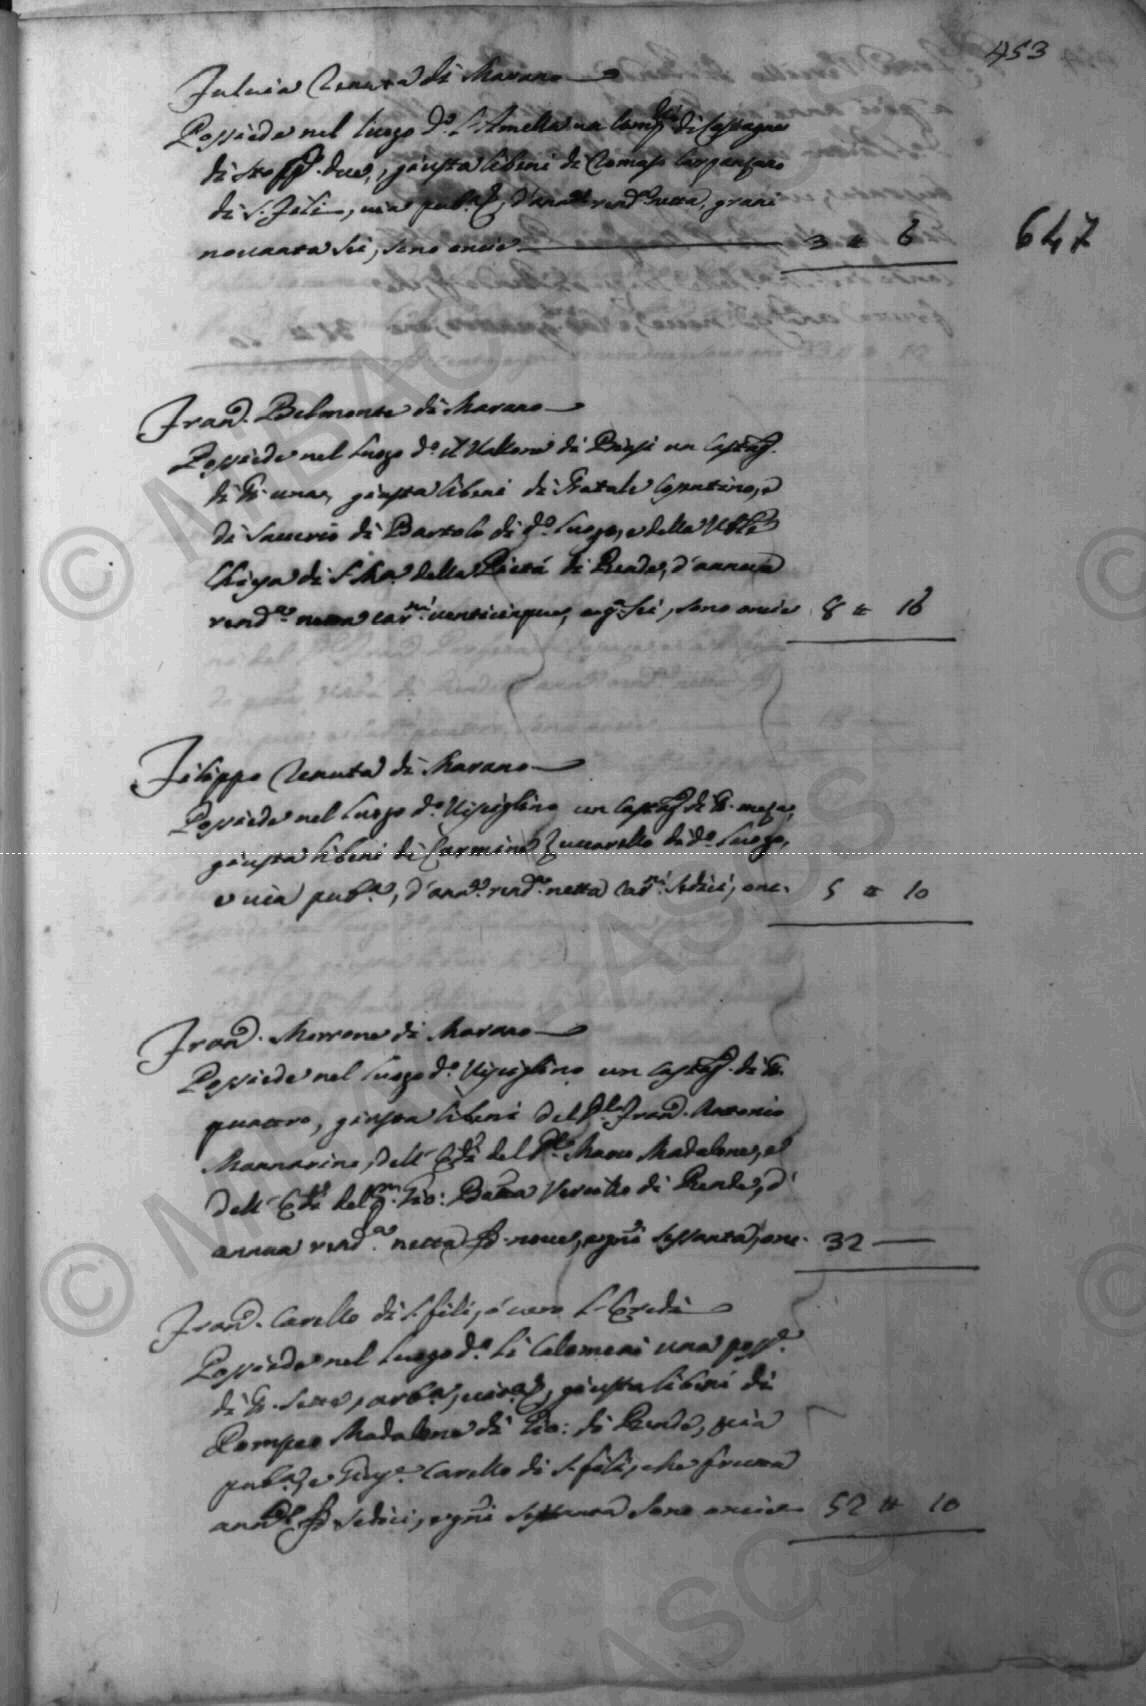 453
Fulvia Tenuta di Marano
Possiede nel luogo d.º S. Amelia un comp. di Castagne
di stop.ª due, giusta li beni di Tomaso Carpanzano
di S. Felì, via pub.ª, d'ann. rend. netta, grani
novanta sei, sono oncie 3 # 6
647
Fran. Belmonte di Marano
Possiede nel luogo d.º il Vallone di Biasi un Castag.
di una, giusta li beni di Natale Cosentino, e
di Saverio di Bartolo di d.º luogo, e della
Chiesa di S. Ma. della Pietà di Rende, d'annua
rend.ª netta car.ni venticinque, e g. sei, sono oncie 8 # 16
Filippo Tenuta di Marano
Possiede nel luogo d.º Vispiglino un Castag. di meza,
giusta li beni di Carmine Zuccarello di d.º luogo,
e via pub.ª, d'ann. rend. netta car.ni sedici, onc. 5 # 10
Fran. Morrone di Marano
Possiede nel luogo d.º Vispiglino un Castag. di
quattro, giusta li beni del Fran. Antonio
Mannarino, dell'Eredi del Marco Madalone, et
dell'Eredi del q.m Gio: Batta Vercillo di Rende, d'
annua rend.ª netta nove, e gni sessanta, onc. 32
Fran. Carello di S. fili, ó vero l'Eredi
Possiede nel luogo d.º li Calomeni una poss.e
di sette, arb.ª, giusta li beni di
Pompeo Madalone di Gio: di Rende, via
pub.ª, e Carello di S. fili, che frutta
sedici, e gni settanta sono oncie 52 # 10
© MiBAC ASCS
© MiBAC ASCS